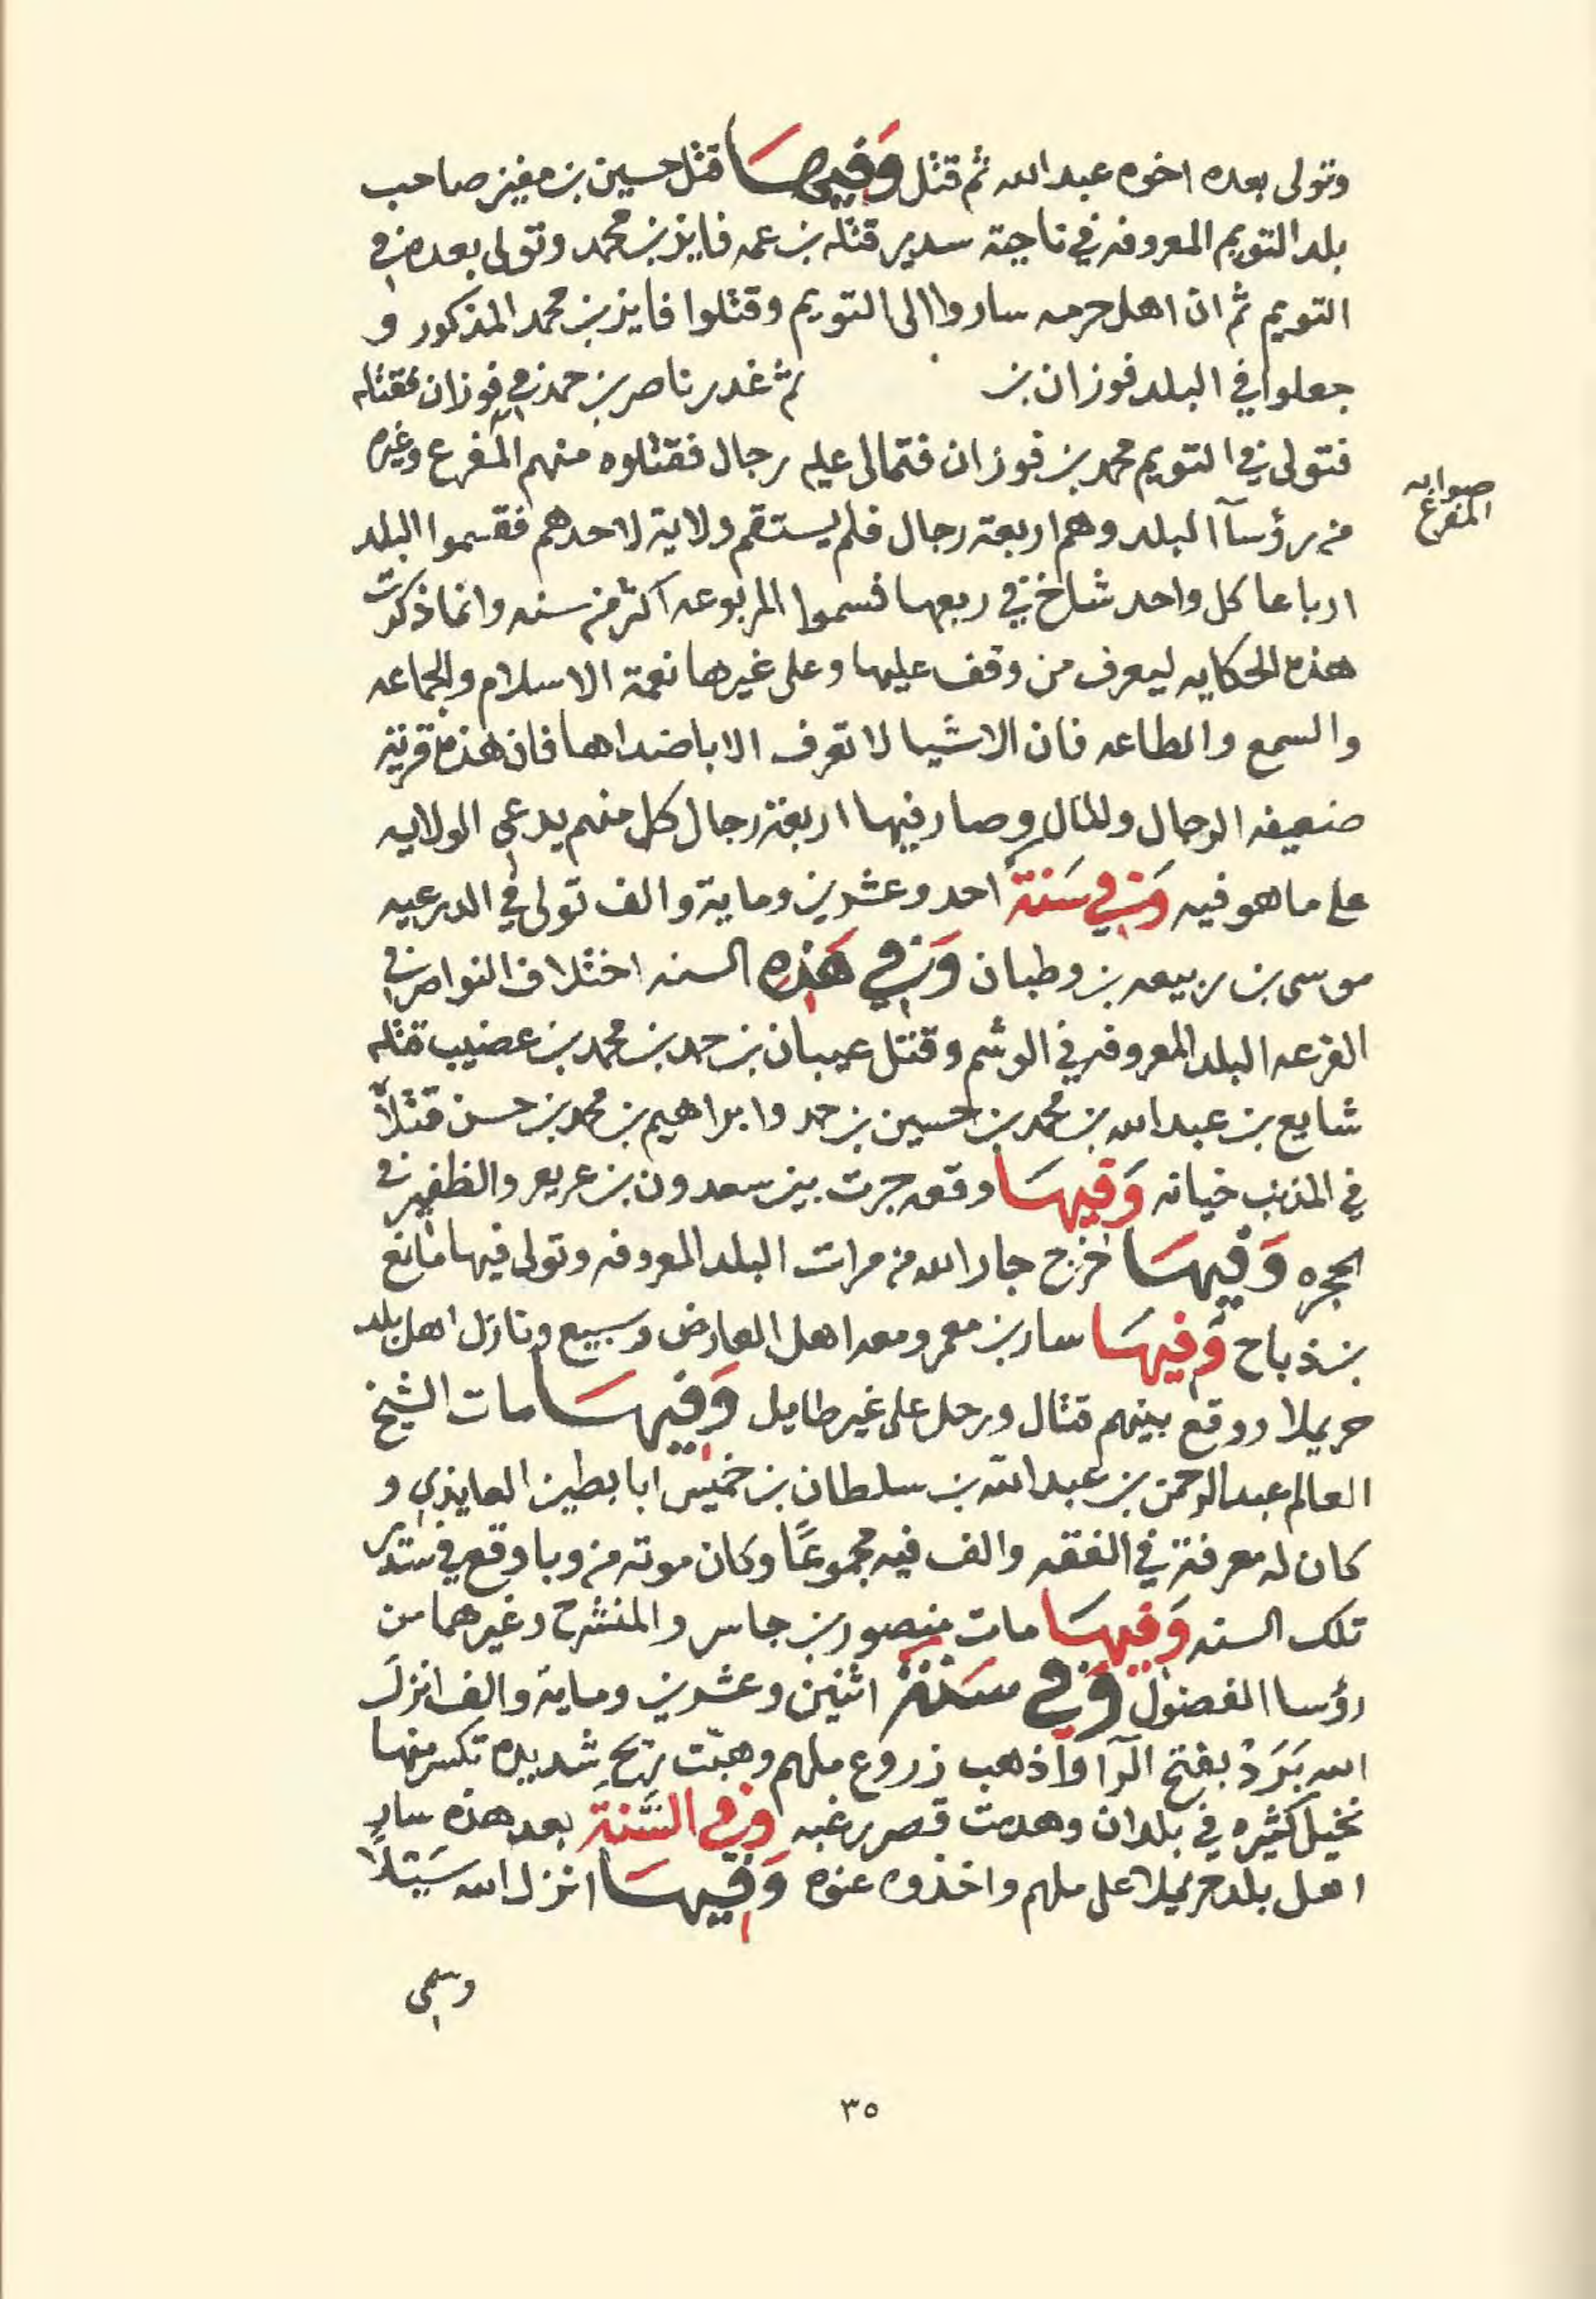 وتولى بعده اخوه عبدالله ثم قتل وَفيهَا قتل حسين بن مفيز صاحب
بلد التويم المعروفه في ناحية سدير قتله بن عمه فايز بن محمد وتولى بعده في
التويم ثم ان اهل حرمه ساروا الى التويم وقتلوا فايز بن محمد المذكور و
جعلوا في البلد فوزان بن ثم غدر ناصر بن حمد في فوزان فقتله
فتولى في التويم محمد بن فوزان فتمالى عليه رجال فقتلوه منهم المفرع وغيره
صوابه
المفرع
من رؤسآ البلد وهم اربعة رجال فلم يستقم ولاية لاحدهم فقسموا البلد
ارباعا كل واحد شاخ في ربعها فسموا المربوعه اكثر من سنه وانما ذكرت
هذه الحكايه ليعرف من وقف عليها وعلى غيرها نعمة الاسلام والجماعه
والسمع والطاعه فان الاشيا لا تعرف الا باضداها فان هذه قرية
ضعيفه الرجال والمال وصار فيها اربعة رجال كل منهم يدعي الولايه
على ما هو فيه وَفي سَنة احد وعشرين وماية والف تولى في الدرعيه
موسى بن ربيعه بن وطبان وَفي هَذِه السنه اختلاف النواصر في
الفرعه البلد المعروفه في الوشم وقتل عيبان بن حمد بن محمد بن عضيب قتله
شايع بن عبدالله بن محمد بن حسين بن حمد وابراهيم بن محمد بن حسن قتلاً
في المذنب خيانه وَفيهَا وقعه جرت بين سعدون بن عريعر والظفير في
الحجره وَفيهَا اخرج جار الله من مرات البلد المعروفه وتولى فيها مانع
بن ذباح وَفيهَا سار بن معمر ومعه اهل العارض وسبيع ونازل اهل بلد
حريملا ووقع بينهم قتال ورحل على غير طايل وَفيهَا مات الشيخ
العالم عبدالرحمن بن عبدالله بن سلطان بن خميس ابابطين العايذي و
كان له معرفة في الفقه والف فيه مجموعًا وكان موته من وبا وقع في سدير
تلك السنه وَفيهَا مات منصور بن جاسر والمنشرح وغيرهما من
رؤسا الفضول وَفي سَنة اثنين وعشرين وماية والف انزل
الله بَرَدْ بفتح الرآ واذهب زروع ملهم وهبت ريح شديده تكسر منها
نخيل كثيره في بلدان وهدمت قصر رغبه وفي السَّنة بعد هذه سار
اهل بلد حريملا على ملهم واخذوه عنوه وَفيهَا انزل الله سَيلاً
وسمى
٣٥